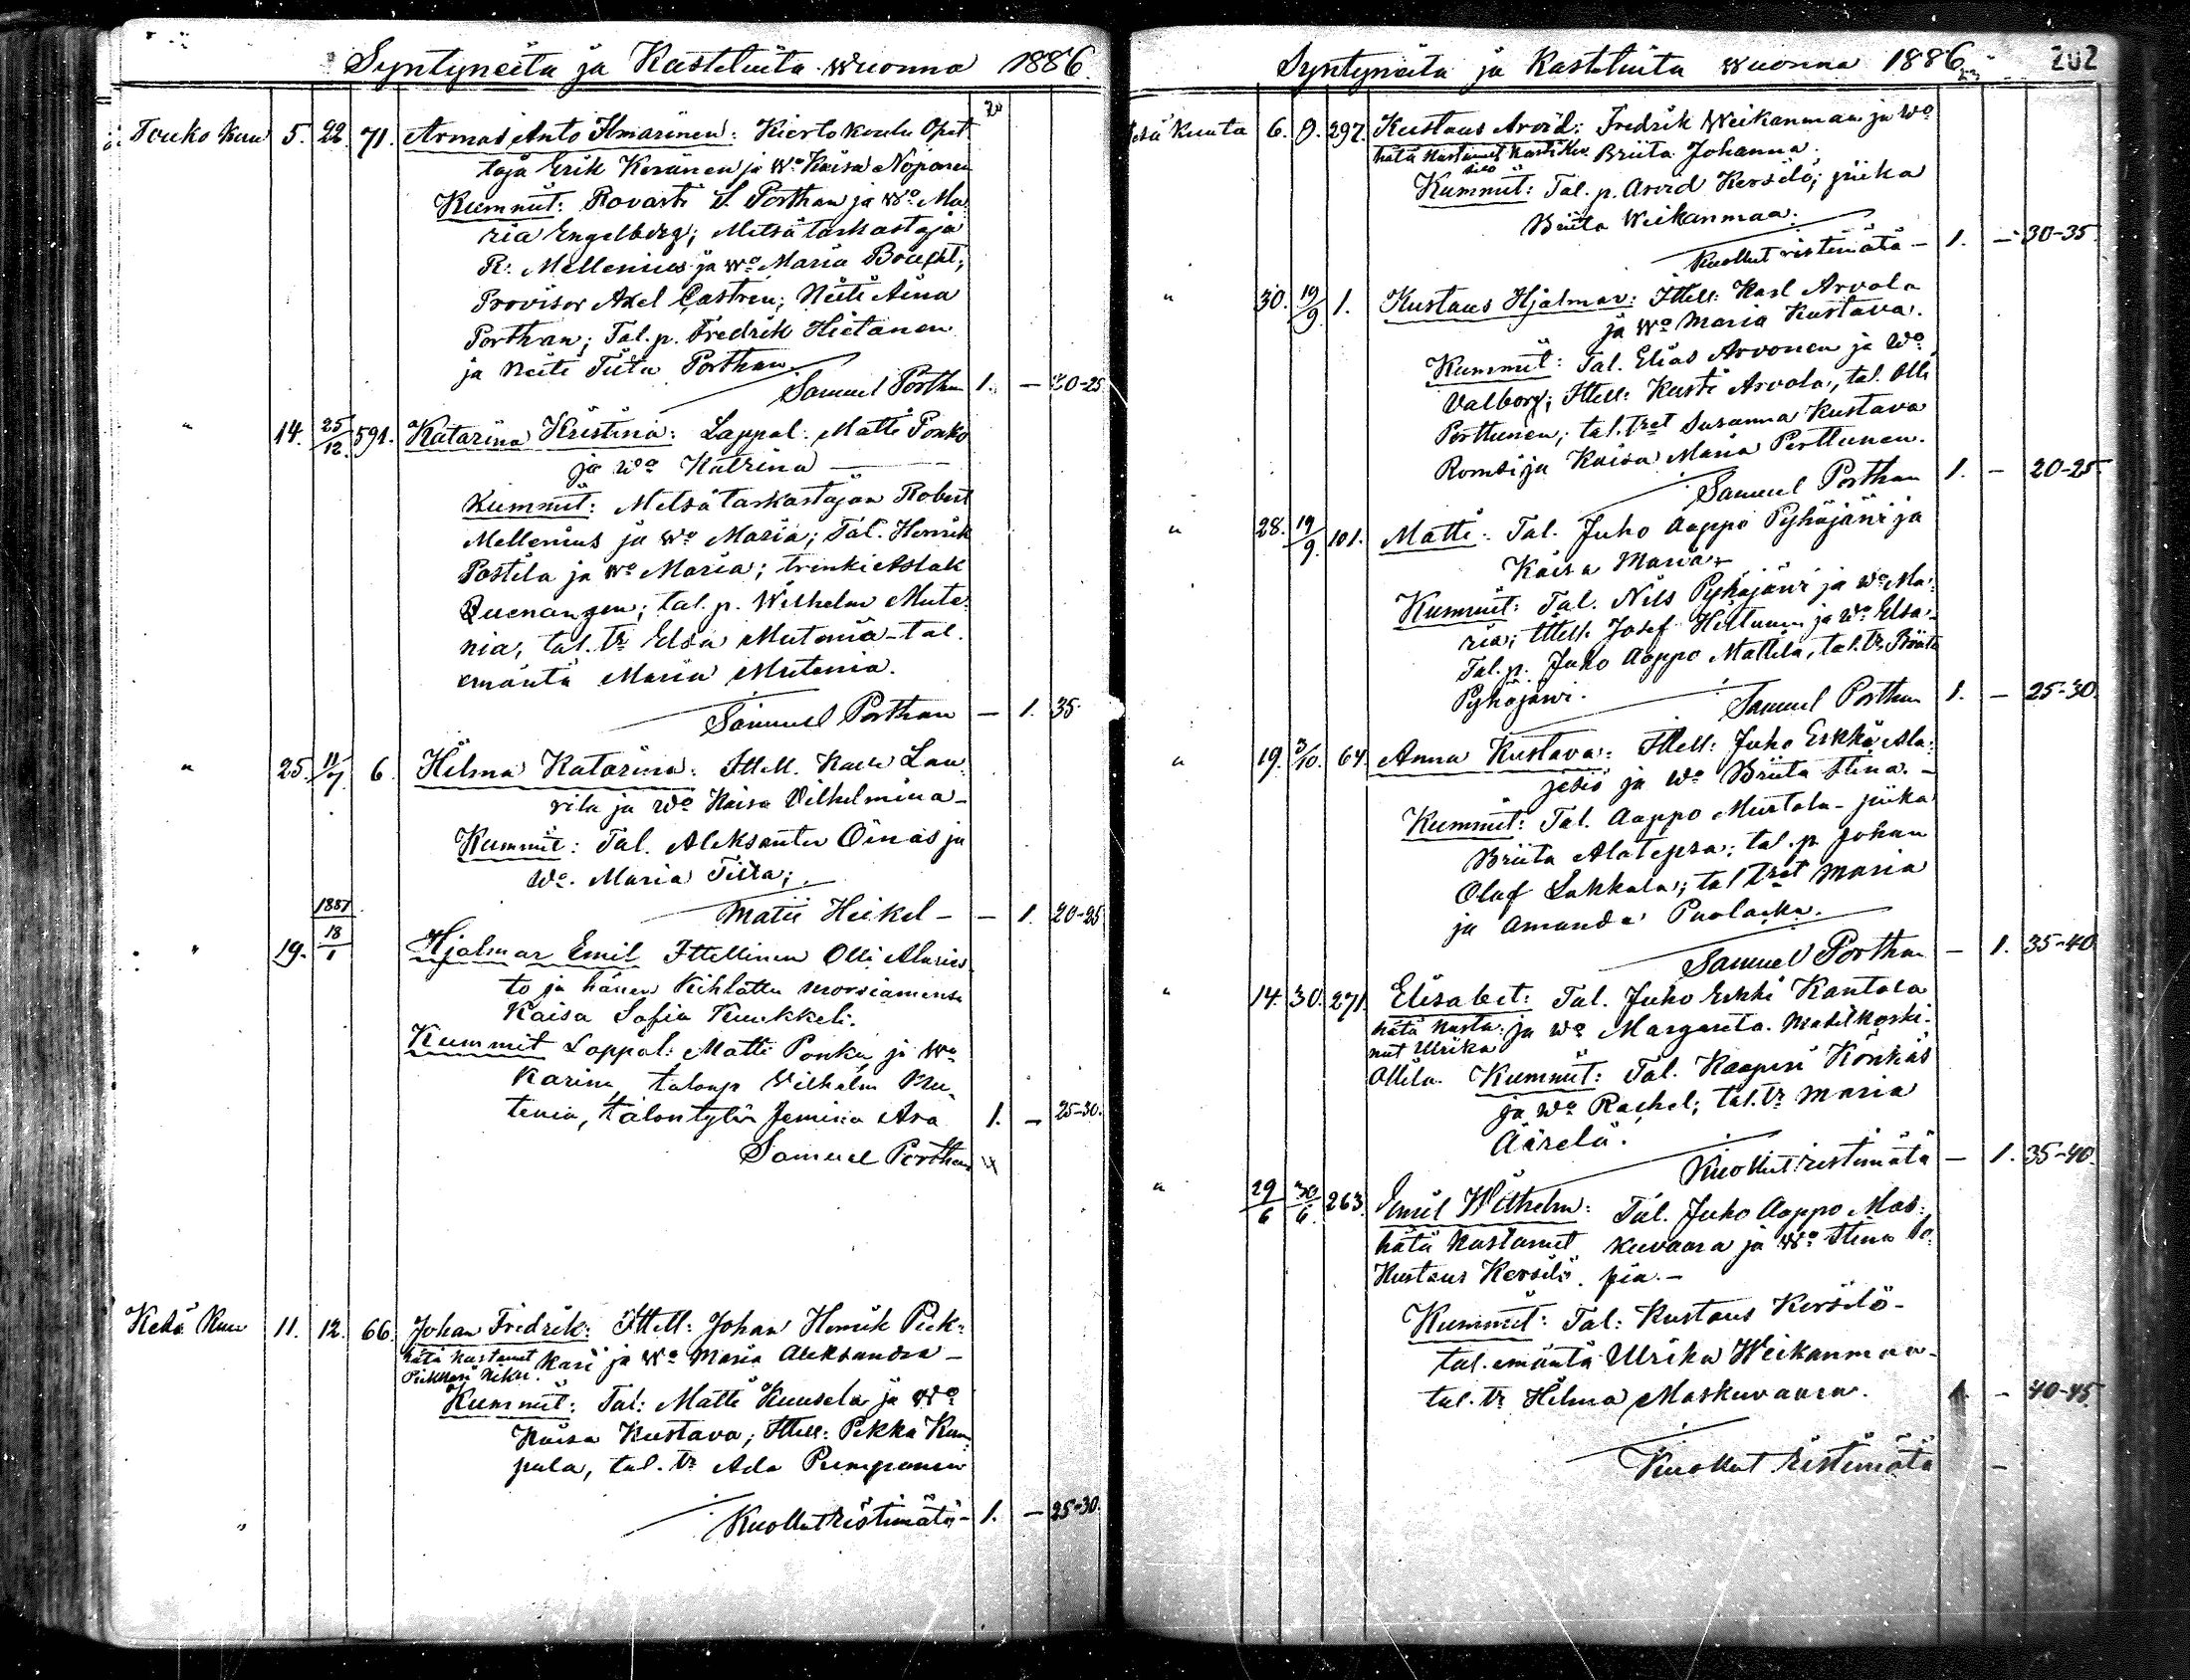 Syntyneitä ja Kasteluita wuonna 1886.
Touko kuu 5. 22. 71. Armas Anto Ilmarinen: Kiertokoulu Opet
taja Erik Keränen ja Wo Kaisa Noponen
Kummit: Rovasti S. Porthan ja Wo Ma
ria Engelberg; Metsätarkastaja
R. Mellenius ja Wo Maria
Provisor Axel Castrén; Neiti Aina
Porthan; Tal. p. Fredrik Hietanen
ja Neiti Tiita Porthan
Samuel Porthan 1. — 20-25
" 14. 25/12. 591. Katarina Kristina: Lappal: Matti Ponko
ja Wo Katrina —
Kummit: Metsätarkastajan Robert
Mellenius ja Wo Maria; Tal. Henrik
Postila ja Wo Maria; trenki Aslak
tal. p. Wilhelm Mute-
nia, tal. tr Elsa Mutenia - tal.
emäntä Maria Mutenia.
Samuel Porthan — 1. 35.
" 25. 11/7. 6. Hilma Katarina: Ittell. Kalle Lau
rila ja Wo Kaisa Vilhelmina -
Kummit: Tal. Aleksanter Oinas ja
Wo. Maria
Matti Heikel - — 1. 20-25
1887
" 19. 18/1 Hjalmar Emil Ittellinen Olli Alaries
to ja hänen kihlattu morsiamensa
Kaisa Sofia
Kummit Lappal: Matti Ponku ja Wo
Karin, talonp Vilhelm Mu
tenia, talontytär Jemina Ara 1. — 25-30.
Samuel Porthan
Kesä Kuu 11. 12. 66. Johan Fridrik: Ittell: Johan Henrik Piek-
hätä kastanut kari ja Wo Maria Aleksandra -
Piekkari
Kummit: Tal: Matti Kuusela ja Wo
Kaisa Kustava; Ittell: Pekka Kum
pula, tal. tr Ada Pumpanen
Kuollut ristimätä - 1. — 25-30.
Syntyneitä ja Kasteluita wuonna 1886 202
Kesä Kuuta 6. 9. 297. Kustaus Arvid: Fredrik Weikanmaa ja Wo
hätä kastanut Briita Johanna.
Kummit: Tal. p. Arvid Kersilö; piika
Briita Weikanmaa.
Kuollut ristimätä - 1. — 30-35.
" 30. 19/9. 1. Kustaus Hjalmar: Ittell: Karl Arvola
ja Wo Maria Kustava.
Kummit: Tal. Elias Arvonen ja Wo
Valborg; Ittell: Kusti Arvola, tal. Olli
Perttunen; tal. tret Susanna Kustava
Romsi ja Kaisa Maria Perttunen.
Samuel Porthan 1. — 20-25
" 28. 19/9. 101. Matti: Tal. Juho Aappo Pyhäjärvi ja
Kaisa Maria -
Kummit: Tal. Nils Pyhäjärvi ja Wo Ma-
ria; Ittell. Josef Hiltunen ja Wo Elsa -
Tal. p. Juho Aappo Mattila, tal. tr Briita
Pyhäjärvi.
Samuel Porthan 1. — 25-30
" 19. 3/10. 64. Anna Kustava: Ittell: Juho Erkki Ala-
jesiö ja Wo Briita Stina. -
Kummit: Tal. Aappo Murtola - piika
Briita Alatepsa; tal. p. Johan
Olaf Lakkala; tal tret Maria
ja Amanda Puolakka.
Samuel Porthan — 1. 35-40
" 14. 30. 271. Elisabet: Tal. Juho Erkki Kantola
hätä kasta: ja Wo Margareta. Matilkoski.
nut Ulrika
Ollila. Kummit: Tal. Kaaperi Könkäs
ja Wo Rachel; tal. tr Maria
Äärelä.
Kuollut ristimätä — 1. 35-40.
" 29/6 30/6. 263. Emil Wilhelm: Tal. Juho Aappo Mas-
hätä kastanut kuvaara ja Wo Stina So-
Kustaus Kersilö. fia. -
Kummit: Tal: Kustaus Kersilö -
tal. emäntä Ulrika Weikanmaa -
tal. tr Hilma Maskuvaara. 1. — 40-45.
Kuollut ristimätä —